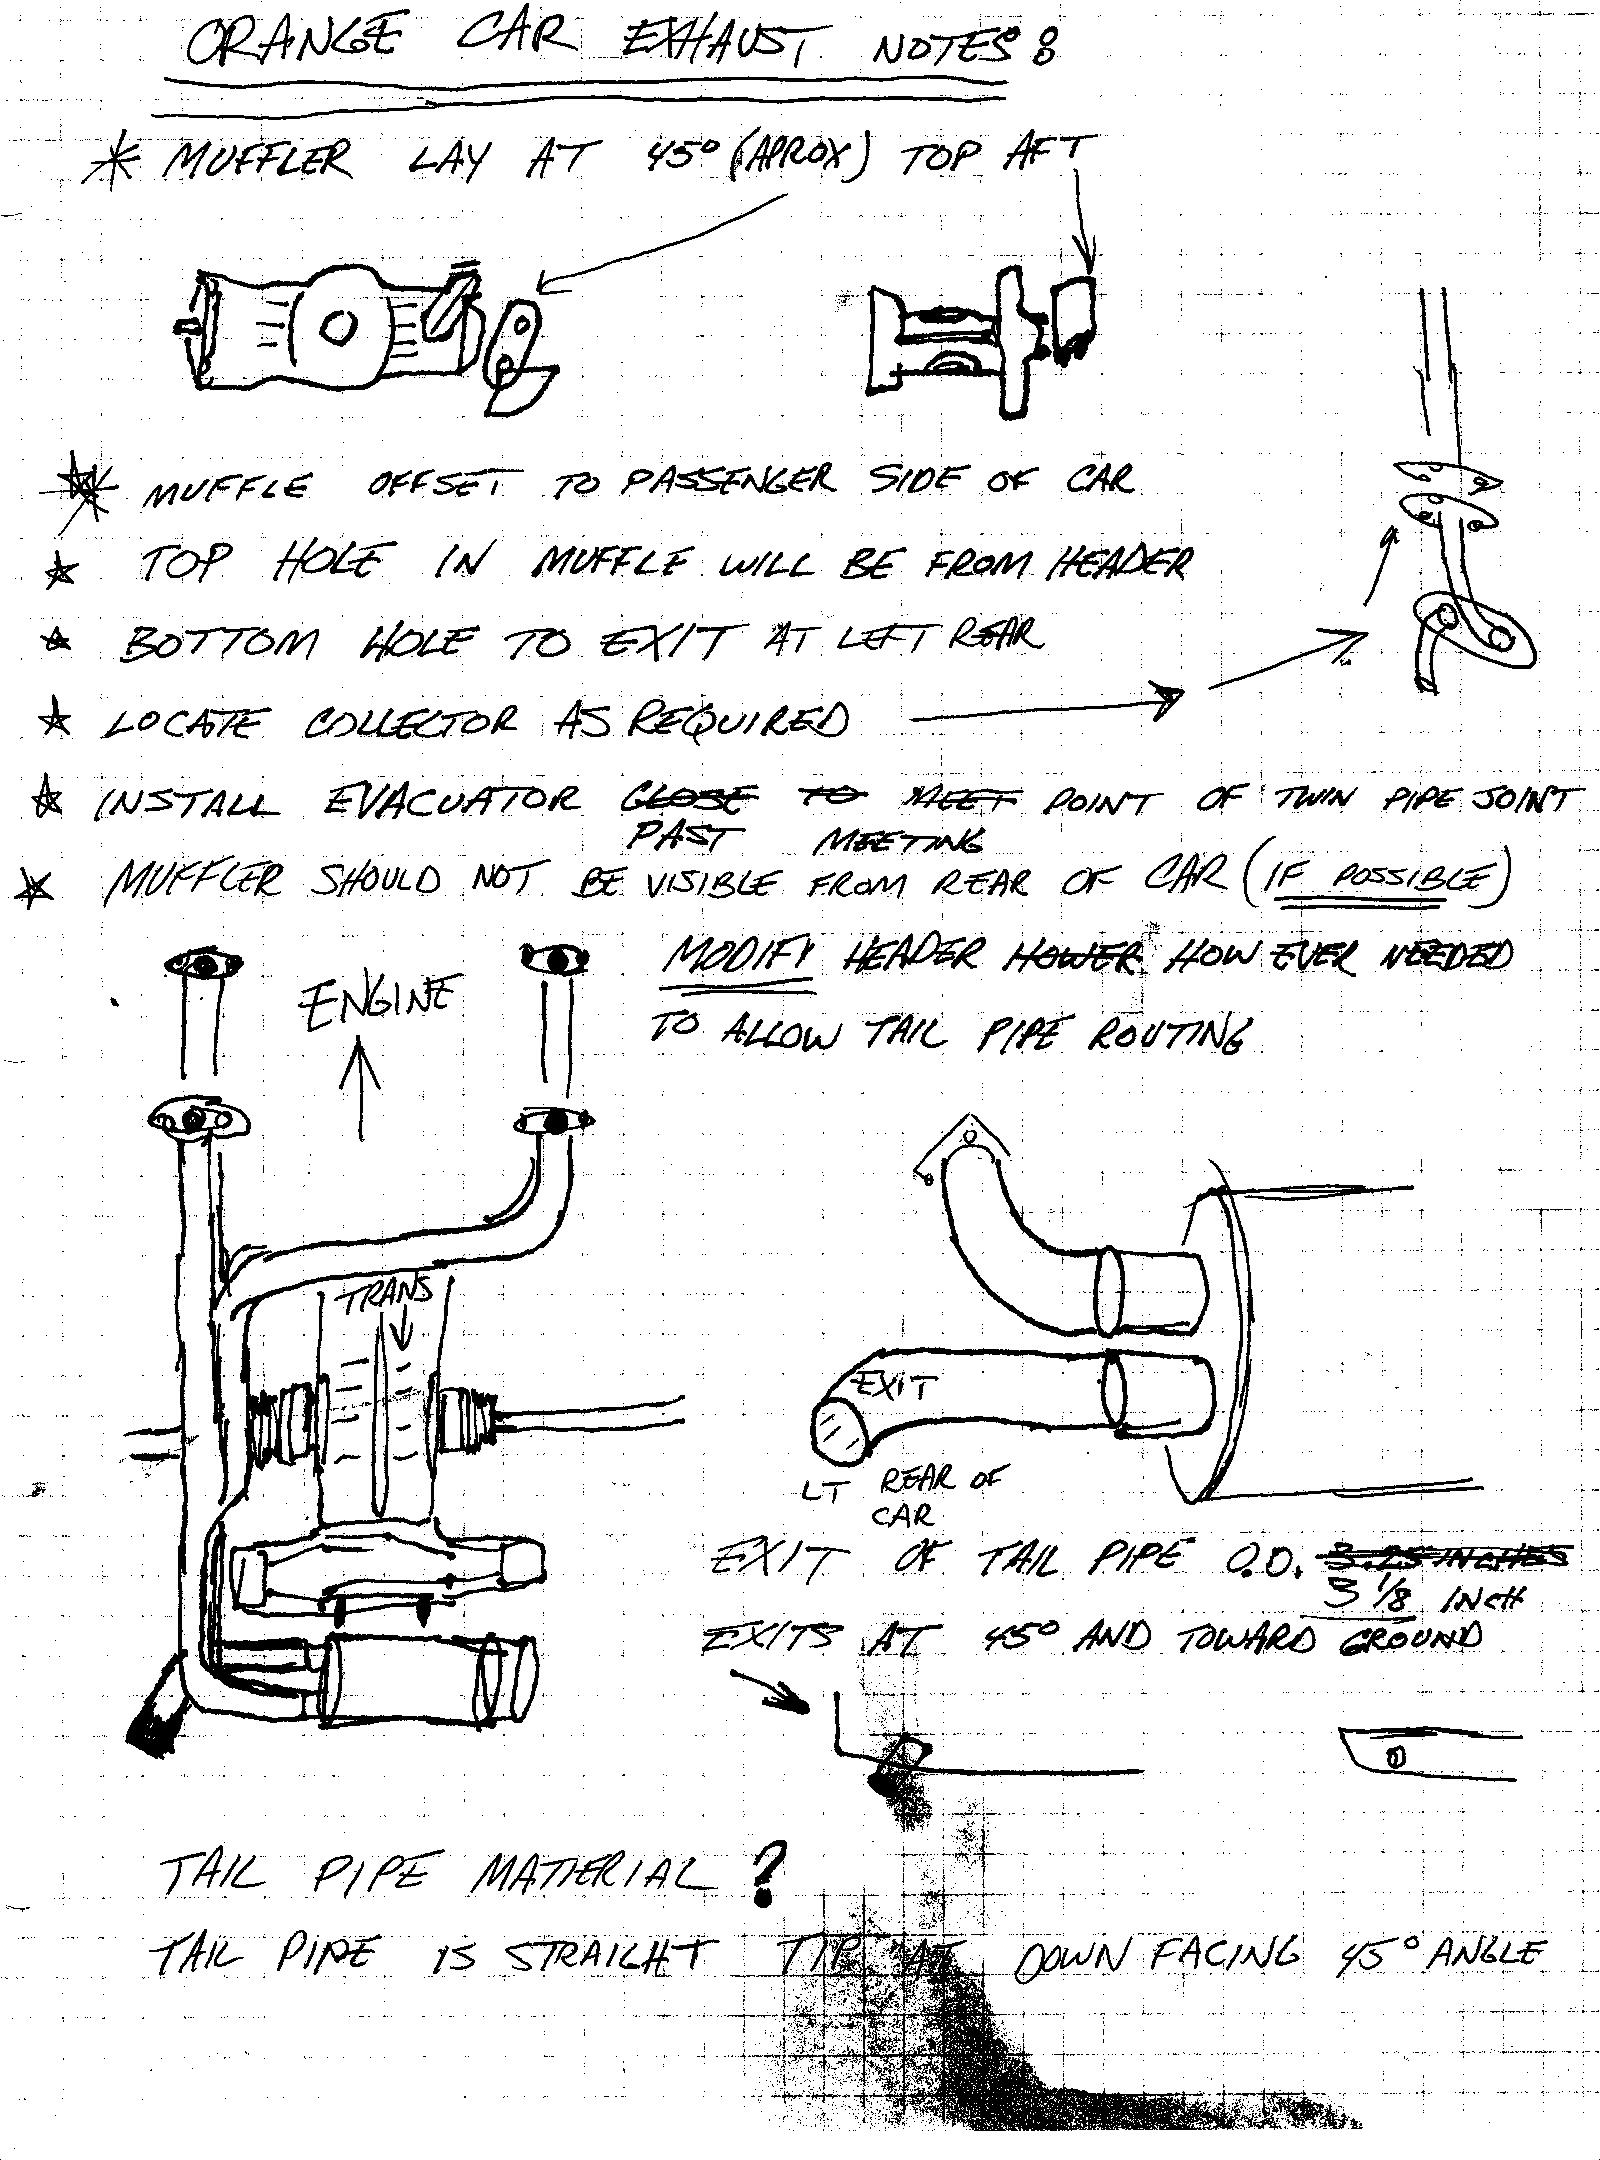 ORANGE CAR EXHAUST NOTES:
* MUFFLER LAY AT 45° (APROX) TOP AFT
* MUFFLE OFFSET TO PASSENGER SIDE OF CAR
* TOP HOLE IN MUFFLE WILL BE FROM HEADER
* BOTTOM HOLE TO EXIT AT LEFT REAR
* LOCATE COLLECTOR AS REQUIRED
* INSTALL EVACUATOR CLOSE TO MEET POINT OF TWIN PIPE JOINT
PAST MEETING
* MUFFLER SHOULD NOT BE VISIBLE FROM REAR OF CAR (IF POSSIBLE)
MODIFY HEADER HOWER HOW EVER NEEDED
TO ALLOW TAIL PIPE ROUTING
ENGINE
TRANS
EXIT
LT REAR OF
CAR
EXIT OF TAIL PIPE O.D. 3.25 INCHES
3 1/8 INCH
EXITS AT 45° AND TOWARD GROUND
TAIL PIPE MATERIAL ?
TAIL PIPE IS STRAIGHT TIP AT DOWN FACING 45° ANGLE